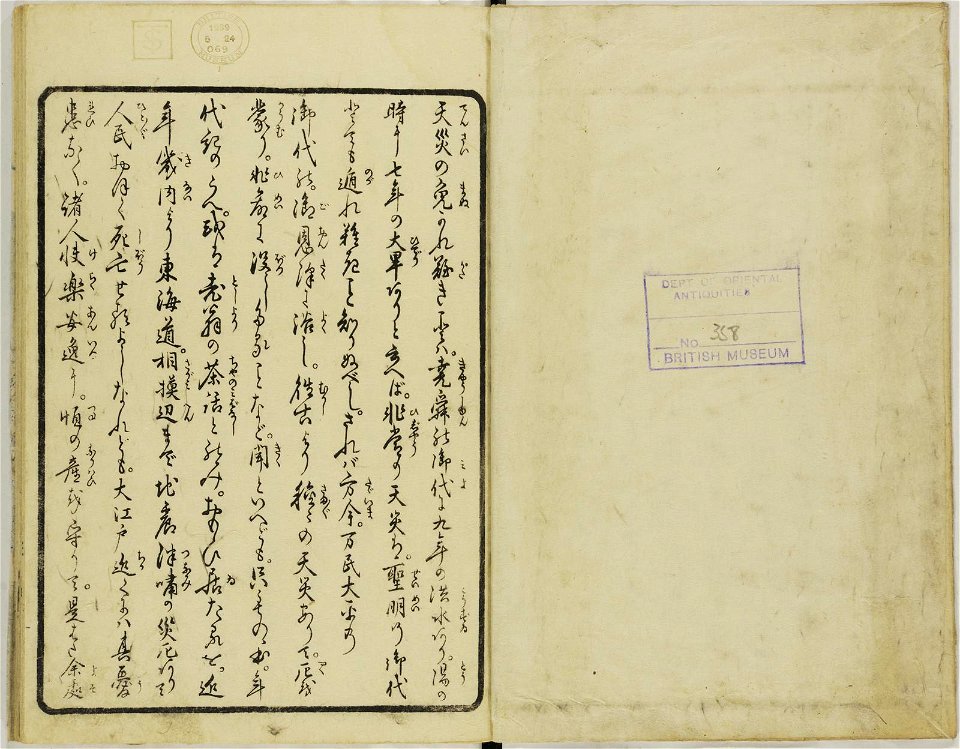 天災の免かれ難きことは堯舜の御代に九年の洪水あり。湯の
時に七年の大旱ありと云へば。非常の天災は。聖明の御代
とても遁れ難きこと知りぬべし。されば方今。万民大平の
御代の。御恩沢に浴し。往古より種々の天災ありて。厄を
蒙り。非命に没したることなど。聞といへども。只その書。年
代記のうへ。或は老翁の茶話とのみ。おもひ居たるを。近
年畿内より東海道。相摸辺まで地震津嘯の災厄ありて
人民おほく死亡せるよしなれども。大江戸近くには其憂
患なく。諸人快楽安逸に。恒の産を守りて。是まで余処
DEPT OF ORIENTAL
ANTIQUITIES
No 358
BRITISH MUSEUM